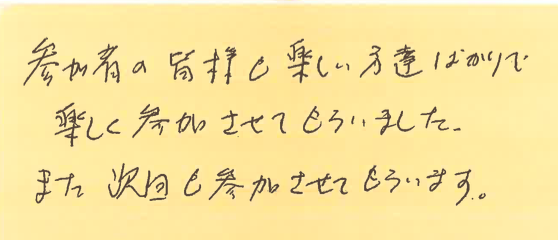 参加者の皆様も楽しい方達ばかりで
楽しく参加させてもらいました。
また次回も参加させてもらいます。